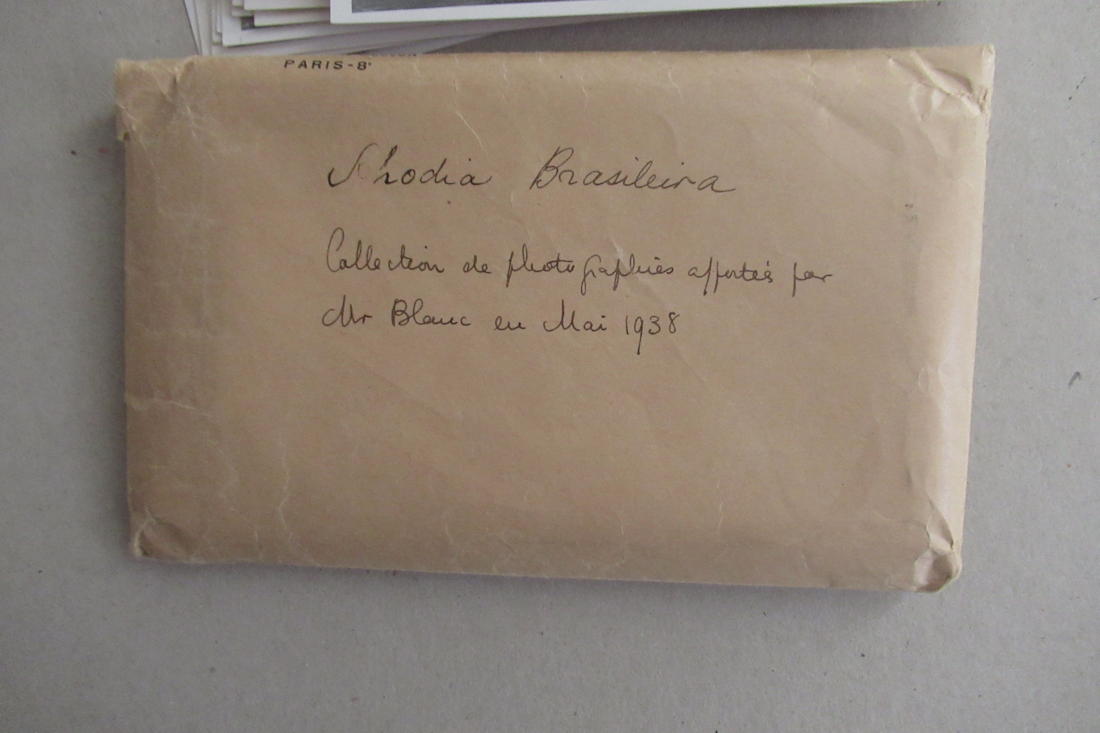 PARIS-8e
Rhodia Brasileira
Collection de photographies apportées par
Mr Blanc en Mai 1938